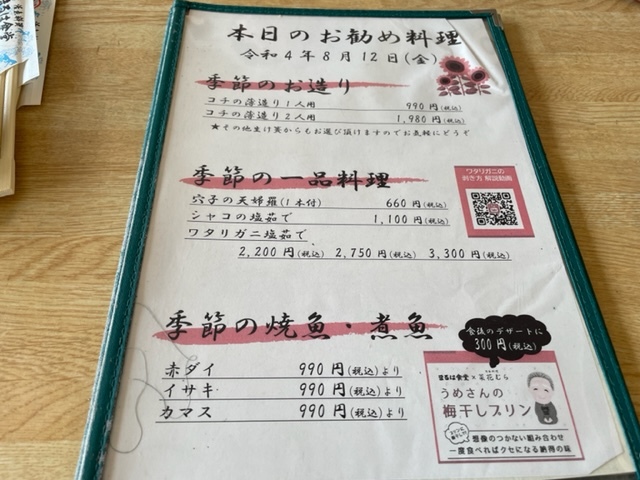 本日のお勧め料理
令和4年8月12日(金)
季節のお造り
コチの薄造り1人用 990円(税込)
コチの薄造り2人用 1,980円(税込)
★その他生け簀からもお選び頂けますのでお気軽にどうぞ
季節の一品料理
穴子の天婦羅(1本付) 660円(税込)
シャコの塩茹で 1,100円(税込)
ワタリガニ塩茹で
2,200円(税込) 2,750円(税込) 3,300円(税込)
ワタリガニの
剥き方 解説動画
季節の焼魚・煮魚
赤ダイ 990円(税込)より
イサキ 990円(税込)より
カマス 990円(税込)より
食後のデザートに
300円(税込)
まるは食堂×花花むら
うめさんの
梅干しプリン
想像のつかない組み合わせ
一度食べればクセになる納得の味